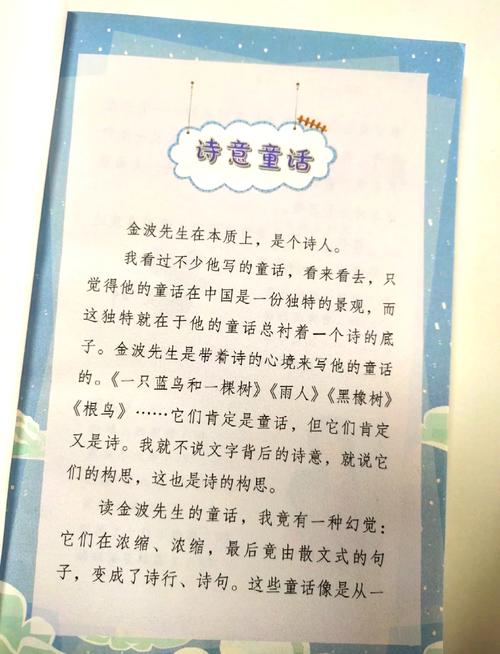 诗意童话
金波先生在本质上，是个诗人。
我看过不少他写的童话，看来看去，只
觉得他的童话在中国是一份独特的景观，而
这独特就在于他的童话总衬着一个诗的底
子。金波先生是带着诗的心境来写他的童话
的。《一只蓝鸟和一棵树》《雨人》《黑橡树》
《根鸟》……它们肯定是童话，但它们肯定
又是诗。我就不说文字背后的诗意，就说它
们的构思，这也是诗的构思。
读金波先生的童话，我竟有一种幻觉：
它们在浓缩、浓缩，最后竟由散文式的句
子，变成了诗行、诗句。这些童话像是从一